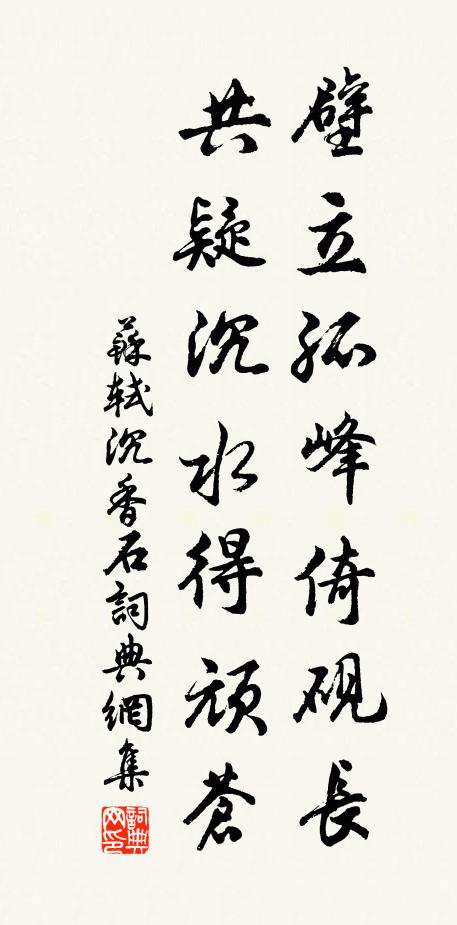 壁立孤峰倚硯長
共疑沉水得頑蒼
蘇軾沉香石詞典網集
詞典网印